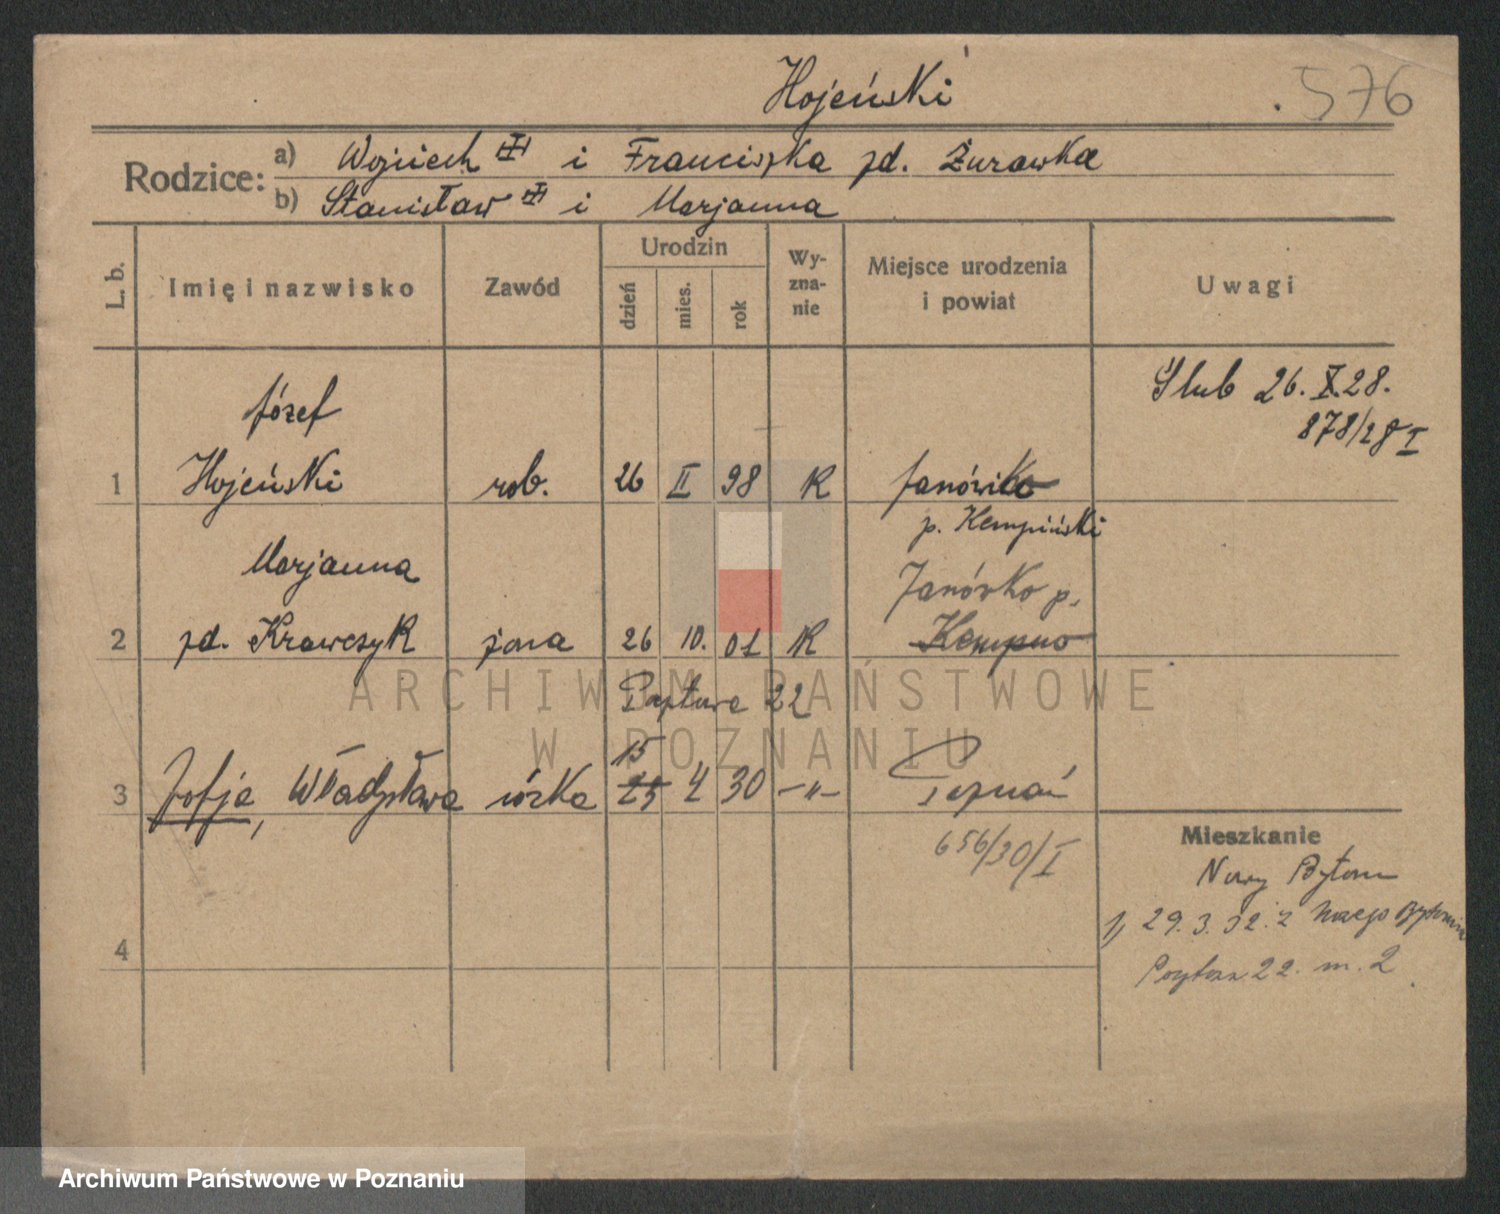 Hojeński
576
Rodzice:
a) Wojciech i Franciszka zd. Żurawka
b) Stanisław i Marjanna
L. b.
Imię i nazwisko
Zawód
Urodzin
dzień
mies.
rok
Wy-
zna-
nie
Miejsce urodzenia
i powiat
Uwagi
Ślub 26.X.28.
878/28 I
Józef
1 Hojeński rob. 26 II 98 K Janówko
p. Kempiński
Marjanna
Janówko p.
2 zd. Krawczyk żona 26 10. 01 K Kempno
22
15
3 Zofja, Władysława córka 25 4 30 —"— Poznań
656/30/I
Mieszkanie
Nowy Bytom
1) 29.3.32. z
4
22. m. 2
ARCHIWUM PAŃSTWOWE
W POZNANIU
Archiwum Państwowe w Poznaniu